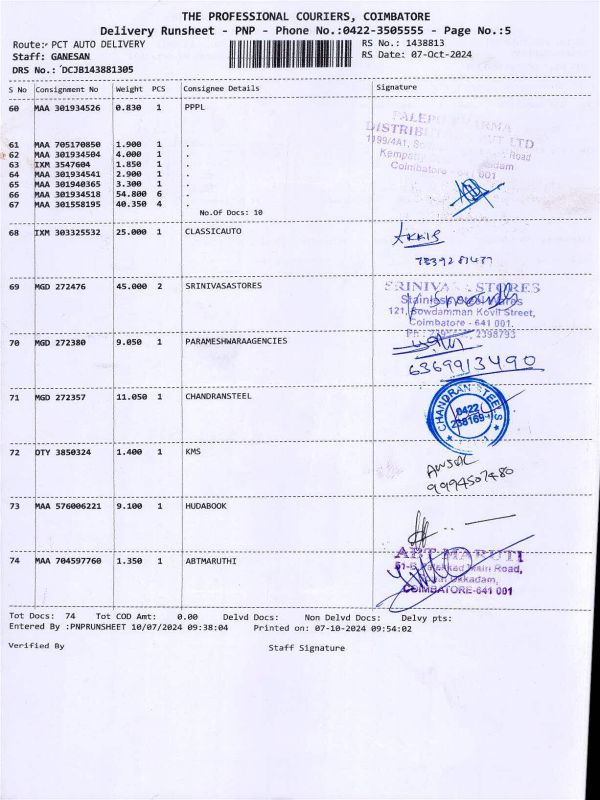 THE PROFESSIONAL COURIERS, COIMBATORE
Delivery Runsheet - PNP - Phone No.:0422-3505555 - Page No.:5
Route: PCT AUTO DELIVERY
RS No.: 1438813
Staff: GANESAN
RS Date: 07-Oct-2024
DRS No.: DCJB143881305
S No Consignment No Weight PCS Consignee Details Signature
60 MAA 301934526 0.830 1 PPPL
61 MAA 705170850 1.900 1 .
62 MAA 301934504 4.000 1 .
63 IXM 3547604 1.850 1 .
64 MAA 301934541 2.900 1 .
65 MAA 301940365 3.300 1 .
66 MAA 301934518 54.800 6 .
67 MAA 301558195 40.350 4 .
No.Of Docs: 10
DISTRIB VT LTD
1199/4A1, Road
Coimbatore 001
68 IXM 303325532 25.000 1 CLASSICAUTO
69 MGD 272476 45.000 2 SRINIVASASTORES
SRINIVASA STORES
Stainless Steel Wares
121, Gowdamman Kovil Street,
Coimbatore - 641 001.
2398793
70 MGD 272380 9.050 1 PARAMESHWARAAGENCIES
6369913490
71 MGD 272357 11.050 1 CHANDRANSTEEL
CHANDRAN STEELS
0422
72 OTY 3850324 1.400 1 KMS
9994507480
73 MAA 576006221 9.100 1 HUDABOOK
74 MAA 704597760 1.350 1 ABTMARUTHI
ABT MARUTI
Main Road,
Ukkadam,
COIMBATORE-641 001
Tot Docs: 74 Tot COD Amt: 0.00 Delvd Docs: Non Delvd Docs: Delvy pts:
Entered By :PNPRUNSHEET 10/07/2024 09:38:04 Printed on: 07-10-2024 09:54:02
Verified By Staff Signature